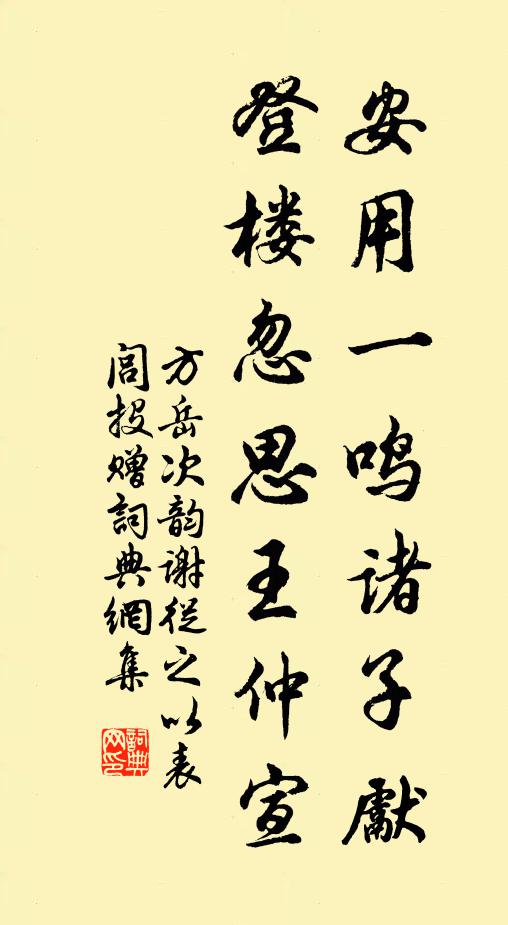 安用一鸣诸子献
登楼忽思王仲宣
方岳次韵谢從之以表
閭投赠詞典網集
詞典网印